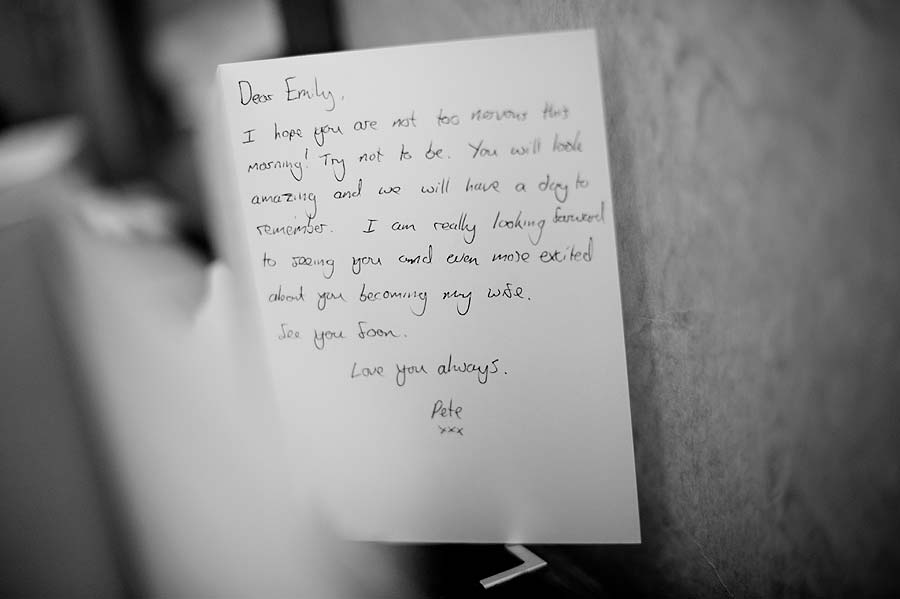 Dear Emily,
I hope you are not too nervous this
morning! Try not to be. You will look
amazing and we will have a day to
remember. I am really looking forward
to seeing you and even more excited
about you becoming my wife.
See you soon.
Love you always.
Pete
xxx